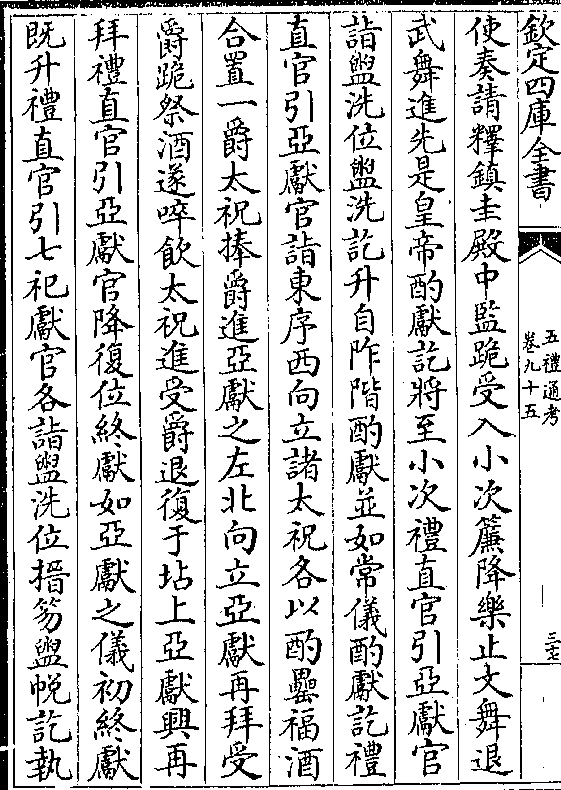 欽定四庫全書
五禮通考
卷九十五
三七
使奏請釋鎮圭殿中監跪受入小次簾降樂止文舞退
武舞進先是皇帝酌獻訖將至小次禮直官引亞獻官
詣盥洗位盥洗訖升自阼階酌獻並如常儀酌獻訖禮
直官引亞獻官詣東序西向立諸太祝各以酌罍福酒
合置一爵太祝捧爵進亞獻之左北向立亞獻再拜受
爵跪祭酒遂啐飲太祝進受爵退復于坫上亞獻興再
拜禮直官引亞獻官降復位終獻如亞獻之儀初終獻
既升禮直官引七祀獻官各詣盥洗位搢笏盥帨訖執